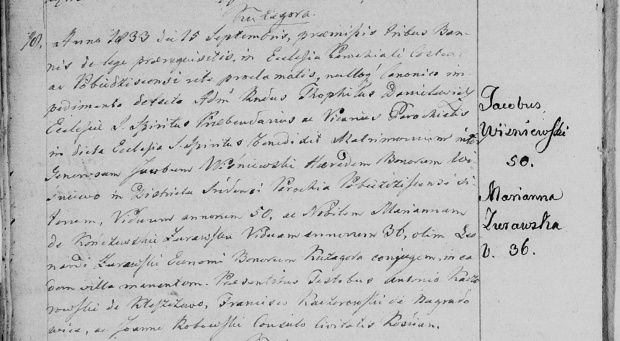 Kurzagora.
Anno 1833 die 15 Septembris, praemissis tribus Ban-
nis de lege praerequisitis, in Ecclesia Parochiali Costen.
ac Wbiedziscensi rite proclamatis, nulloq Canonico im-
pedimento detecto Adm Rndus Theophilus Danielewicz
Ecclesiae S. Spiritus Praebendarius ac Vicarius Parochialis
in dicta Ecclesia S. Spiritus benedixit Matrimonium inter
Generosum Jacobum Wiśniewski Haeredem Bonorum
in Districtu Parochia si-
torum, Viduum annorum 50, ac Nobilem Mariannam
de Żurawska Viduam annorum 36, olim Leo-
nardi Żurawski Economi Bonorum Kurzagora conjugem, in ea-
dem villa manentem. Praesentibus Testibus Antonio Kacz-
rowski de Francisco Kaczorowski de Nagrado-
wice, ac Joanne Bobowski Consule Civitatis Kościan.
Jacobus
Wiśniewski
50.
Marianna
Żurawska
v. 36.